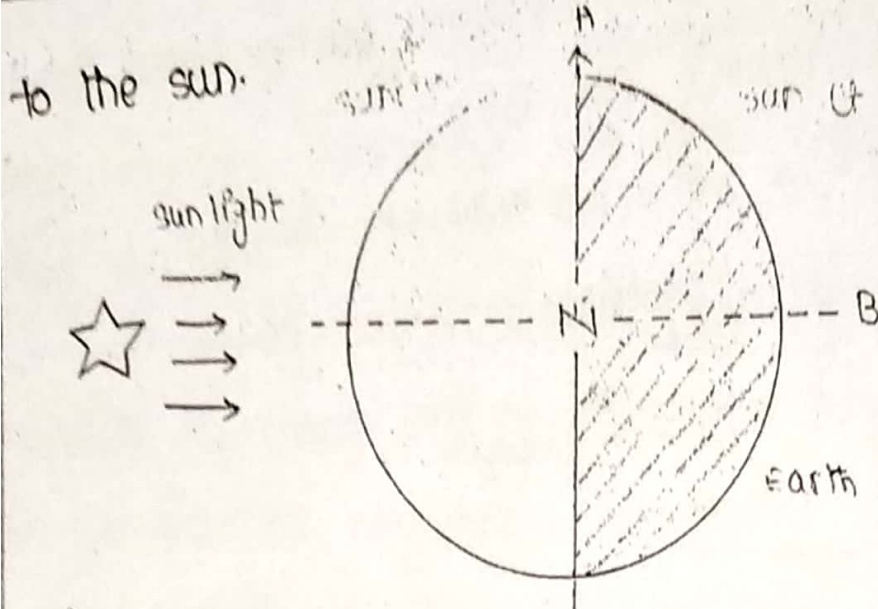 A
to the sun.
sun
sun light
N
B
Earth